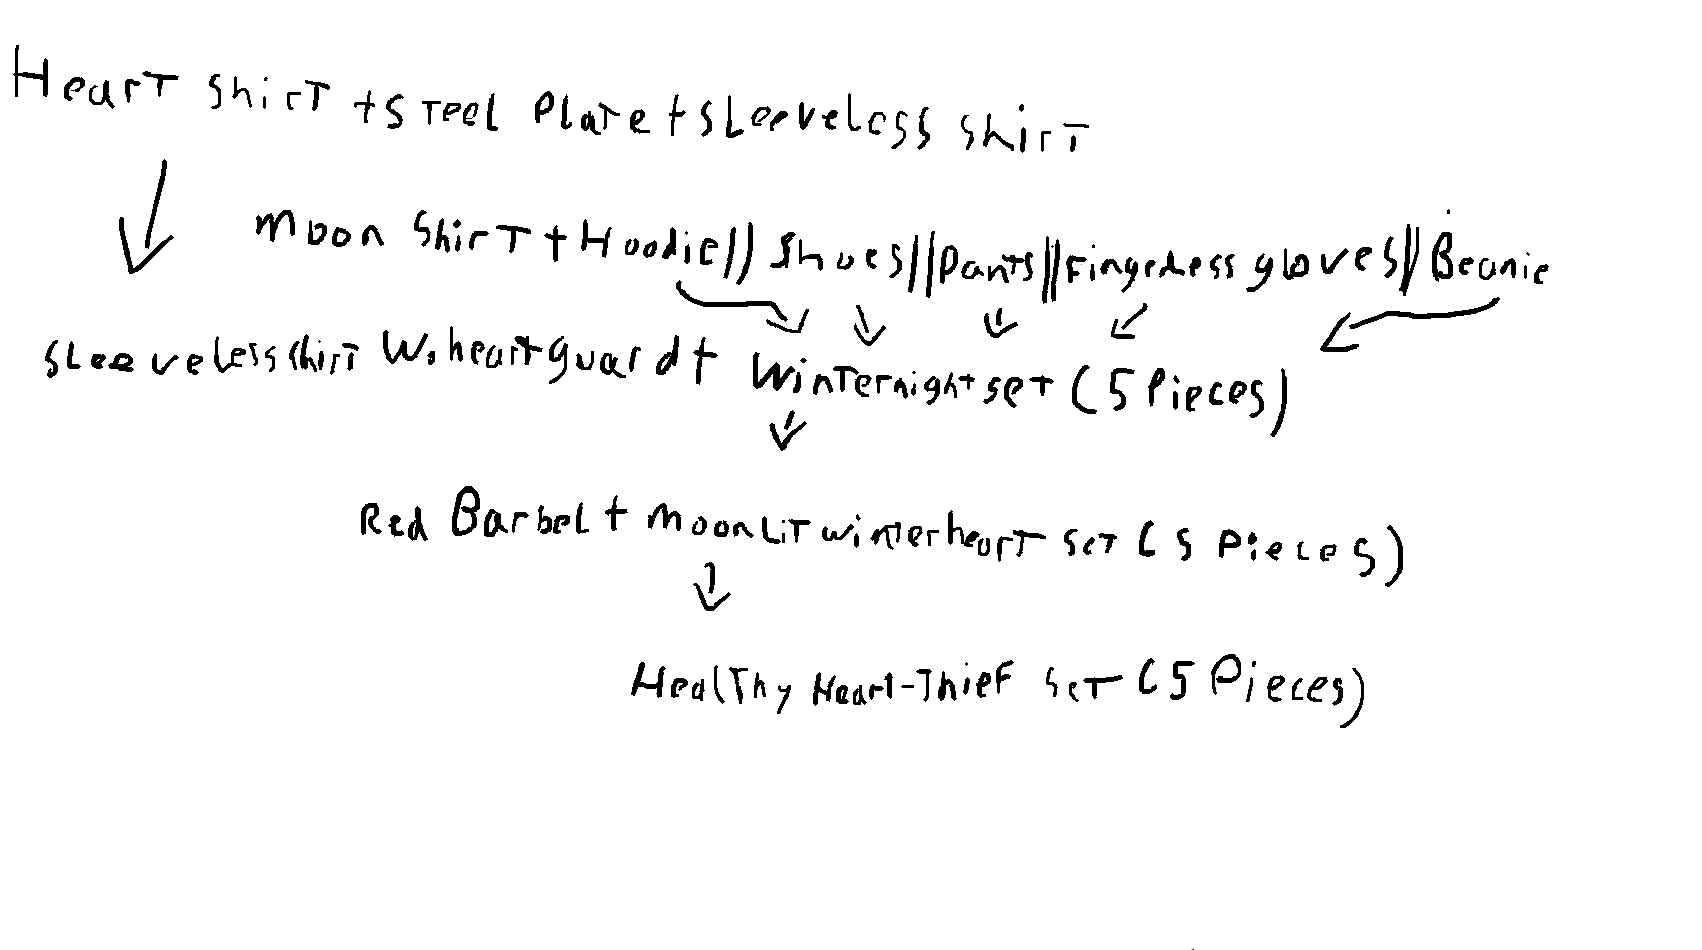 Heart shirt + Steel Plate + Sleeveless shirt
Moon Shirt + Hoodie// Shoes//Pants//Fingerless gloves//Beanie
Sleeveless shirt W. heart guard + Winternight set (5 Pieces)
Red Barbel + Moonlit winterheart set (5 Pieces)
Healthy Heart-Thief set (5 Pieces)